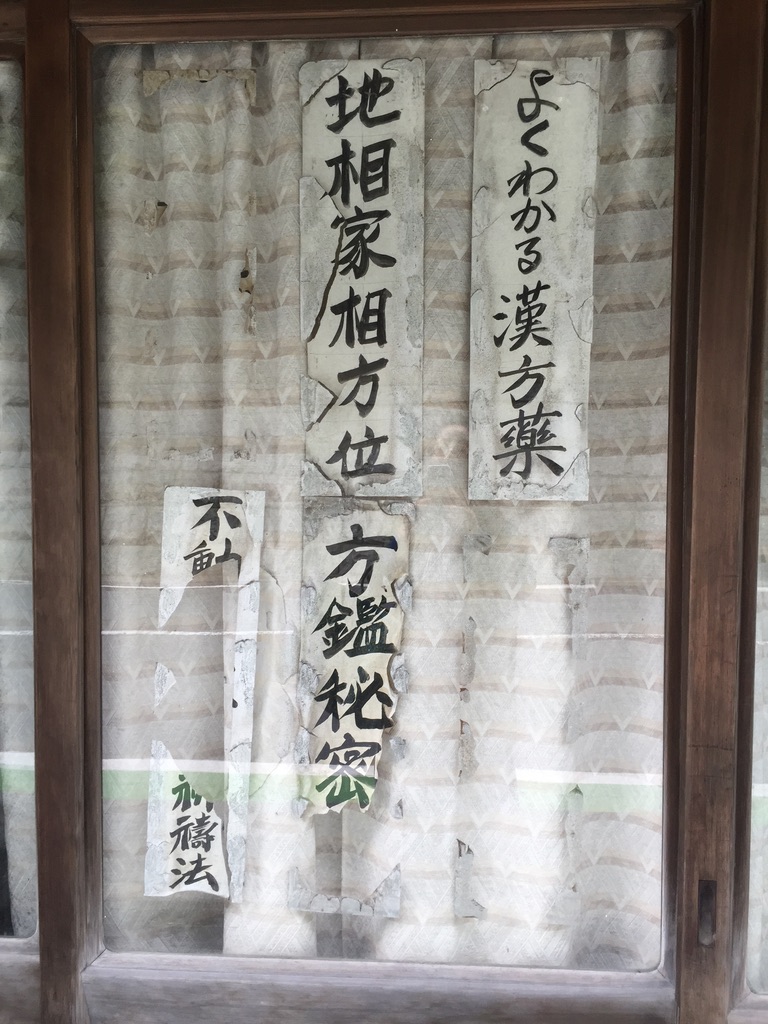 よくわかる漢方薬
地相家相方位
方鑑秘密
不
祈禱法